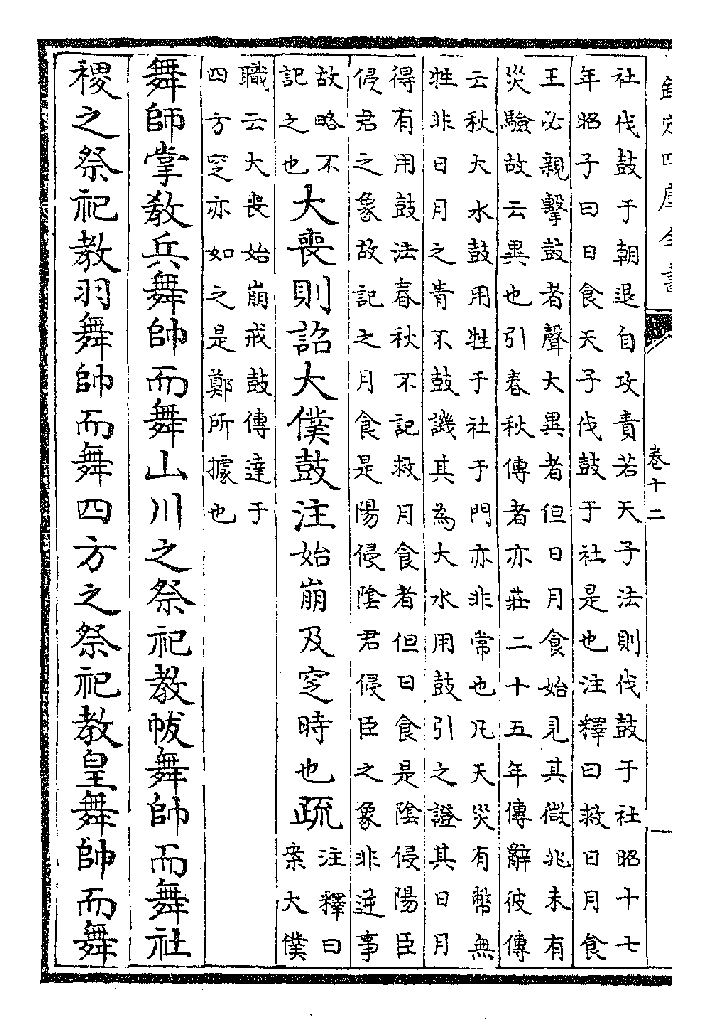 欽定四庫全書
卷十二
社伐鼓于朝退自攻責若天子法則伐鼓于社昭十七
年昭子曰日食天子伐鼓于社是也注釋曰救日月食
王必親擊鼓者聲大異者但日月食始見其微兆未有
災驗故云異也引春秋傳者亦莊二十五年傳辭彼傳
云秋大水鼓用牲于社于門亦非常也凡天災有幣無
牲非日月之眚不鼓譏其為大水用鼓引之證其日月
得有用鼓法春秋不記救月食者但日食是陰侵陽臣
侵君之象故記之月食是陽侵陰君侵臣之象非逆事
故略不
記之也
大喪則詔大僕鼓注始崩及窆時也疏
注釋曰
案大僕
職云大喪始崩戒鼓傳達于
四方窆亦如之是鄭所據也
舞師掌教兵舞帥而舞山川之祭祀教帗舞帥而舞社
稷之祭祀教羽舞帥而舞四方之祭祀教皇舞帥而舞